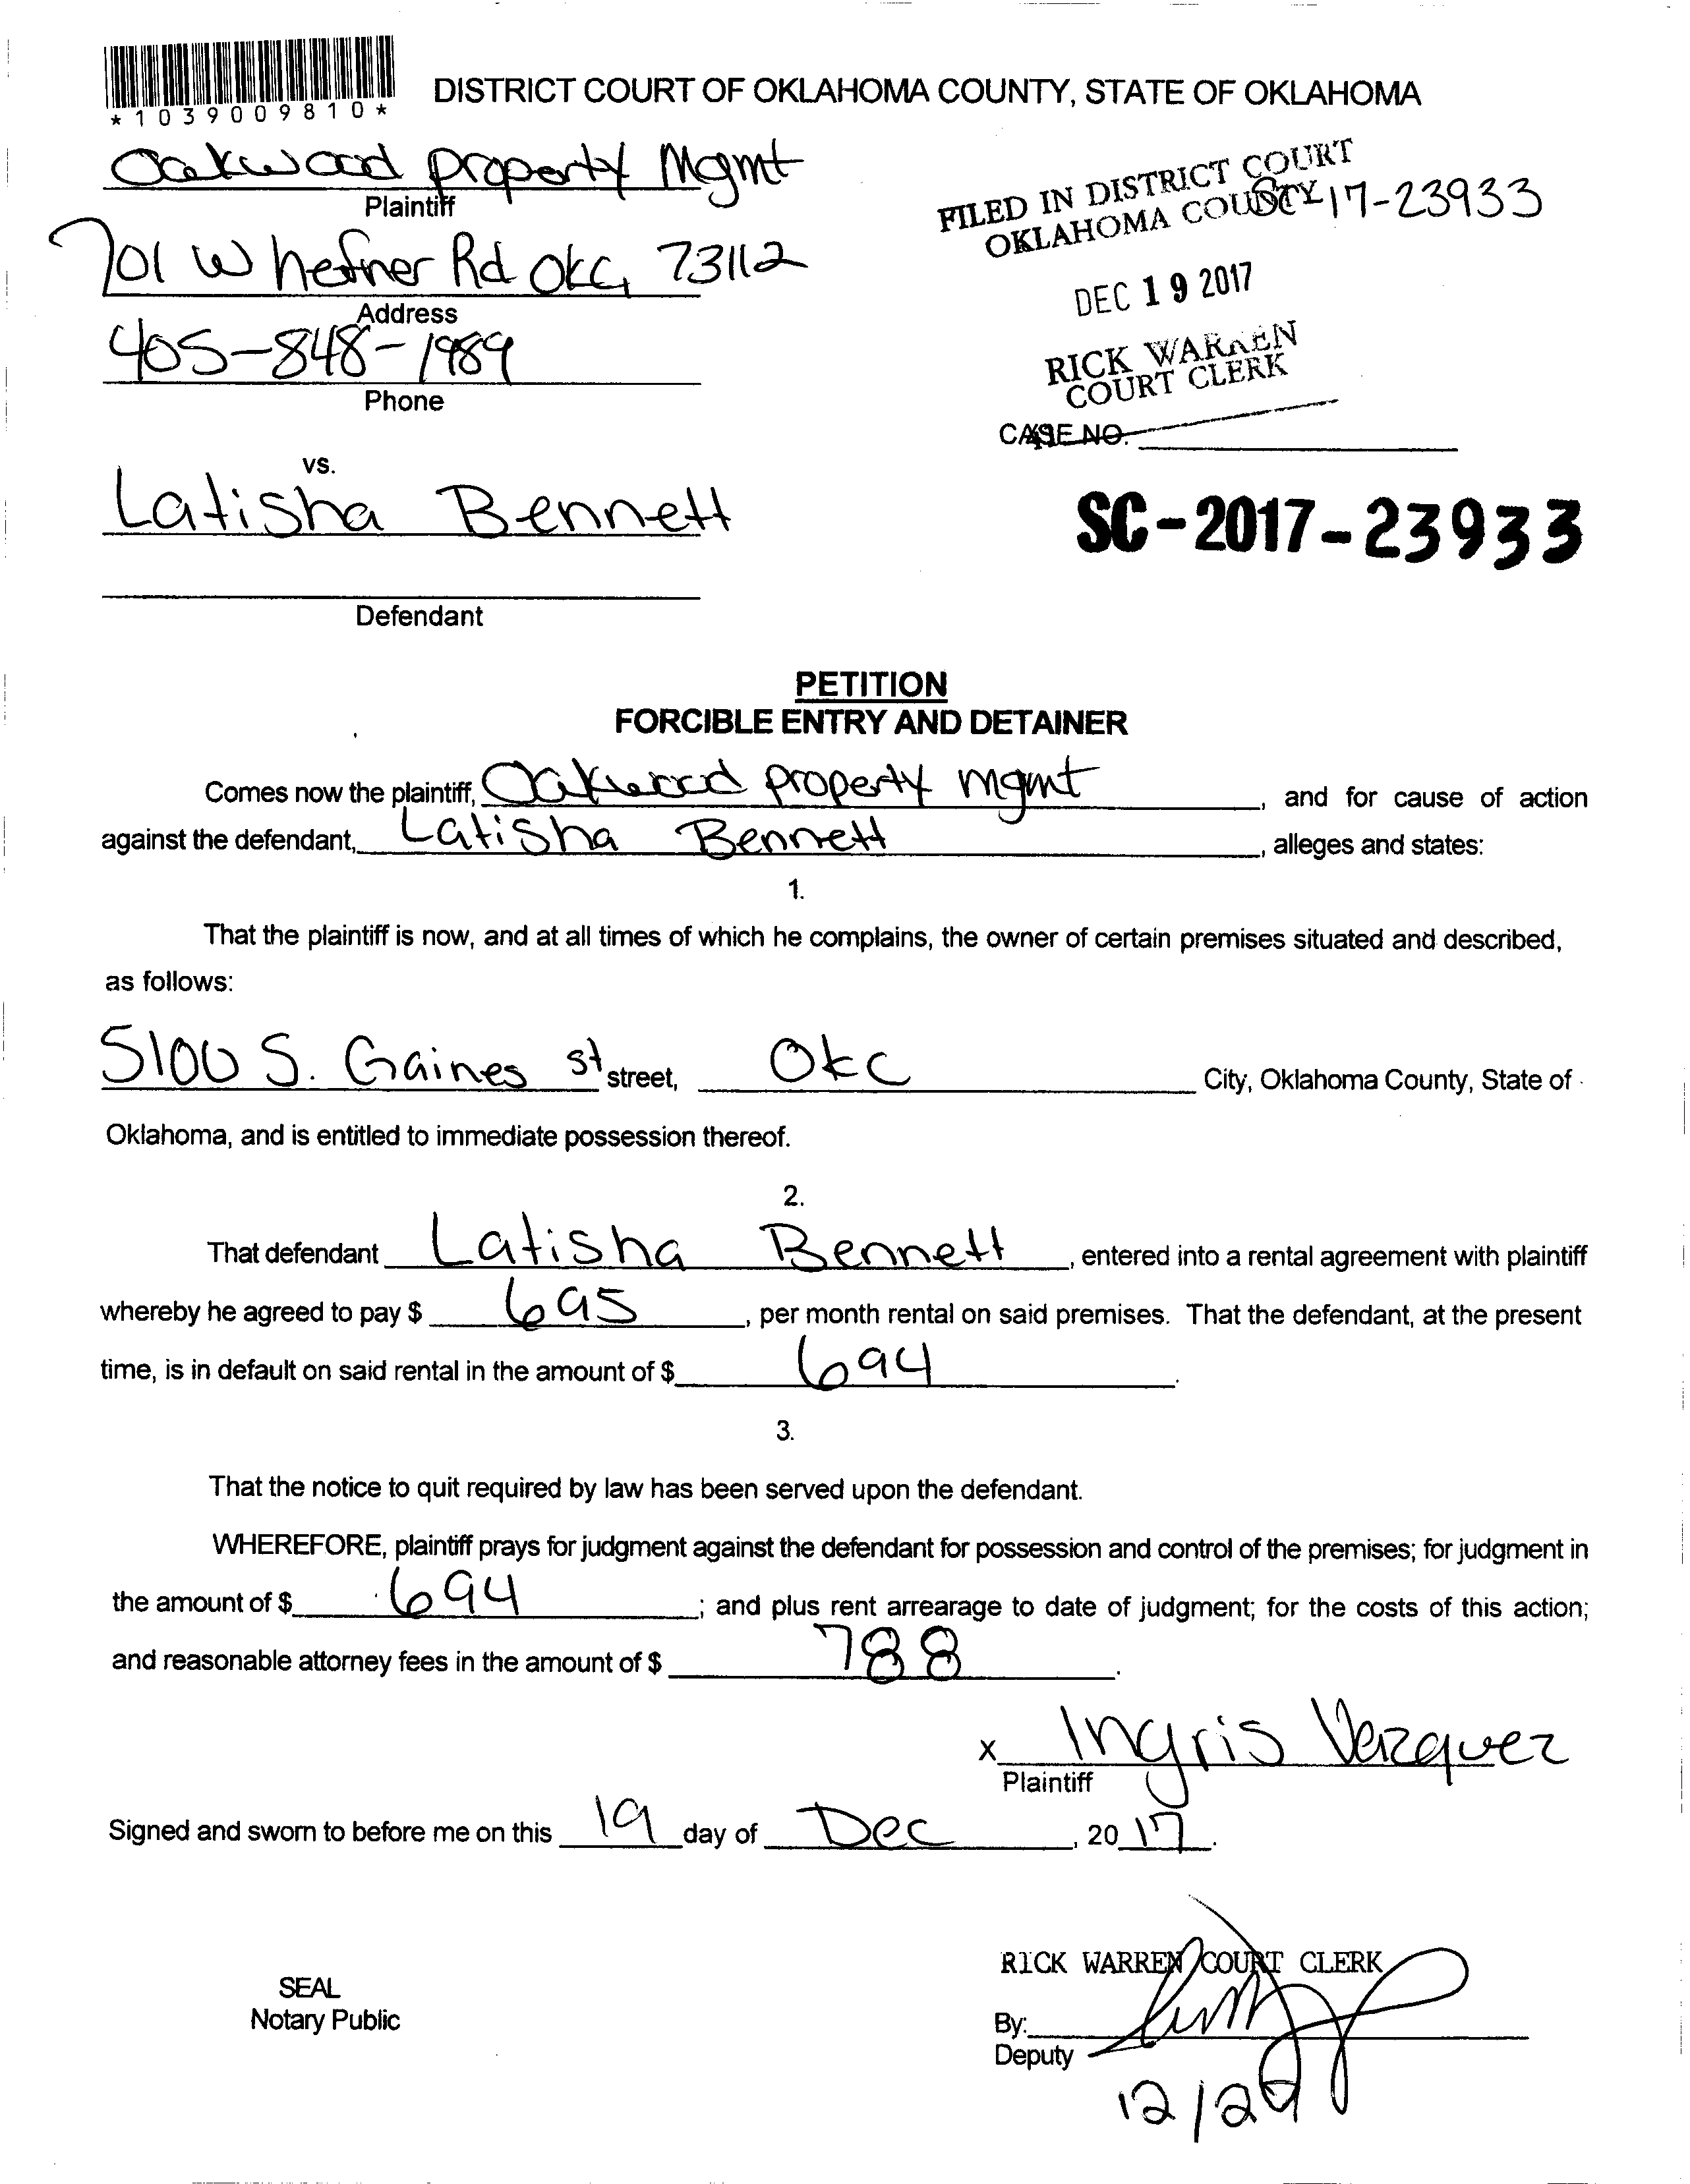 *1039009810*
DISTRICT COURT OF OKLAHOMA COUNTY, STATE OF OKLAHOMA
Oakwood property Mgmt
Plaintiff
FILED IN DISTRICT COURT
OKLAHOMA COUNTY
SC 17-23933
701 W hefner Rd OKC, 73112
Address
DEC 19 2017
405-848-1989
Phone
RICK WARREN
COURT CLERK
CASE NO.
vs.
Latisha Bennett
SC-2017-23933
Defendant
PETITION
FORCIBLE ENTRY AND DETAINER
Comes now the plaintiff, Oakwood property mgmt, and for cause of action
against the defendant, Latisha Bennett, alleges and states:
1.
That the plaintiff is now, and at all times of which he complains, the owner of certain premises situated and described,
as follows:
5100 S. Gaines st street, OKC City, Oklahoma County, State of
Oklahoma, and is entitled to immediate possession thereof.
2.
That defendant Latisha Bennett, entered into a rental agreement with plaintiff
whereby he agreed to pay $ 695, per month rental on said premises. That the defendant, at the present
time, is in default on said rental in the amount of $ 694.
3.
That the notice to quit required by law has been served upon the defendant.
WHEREFORE, plaintiff prays for judgment against the defendant for possession and control of the premises; for judgment in
the amount of $ 694; and plus rent arrearage to date of judgment; for the costs of this action;
and reasonable attorney fees in the amount of $ 788.
x Ingris Vazquez
Plaintiff
Signed and sworn to before me on this 19 day of Dec, 2017.
RICK WARREN COURT CLERK
SEAL
Notary Public
By:
Deputy